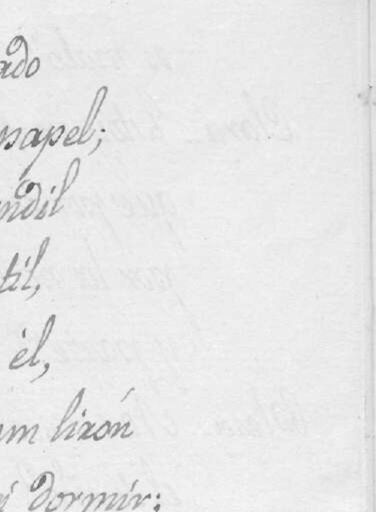 ado
papel;
ndil
til,
él,
un lirón
dormir: